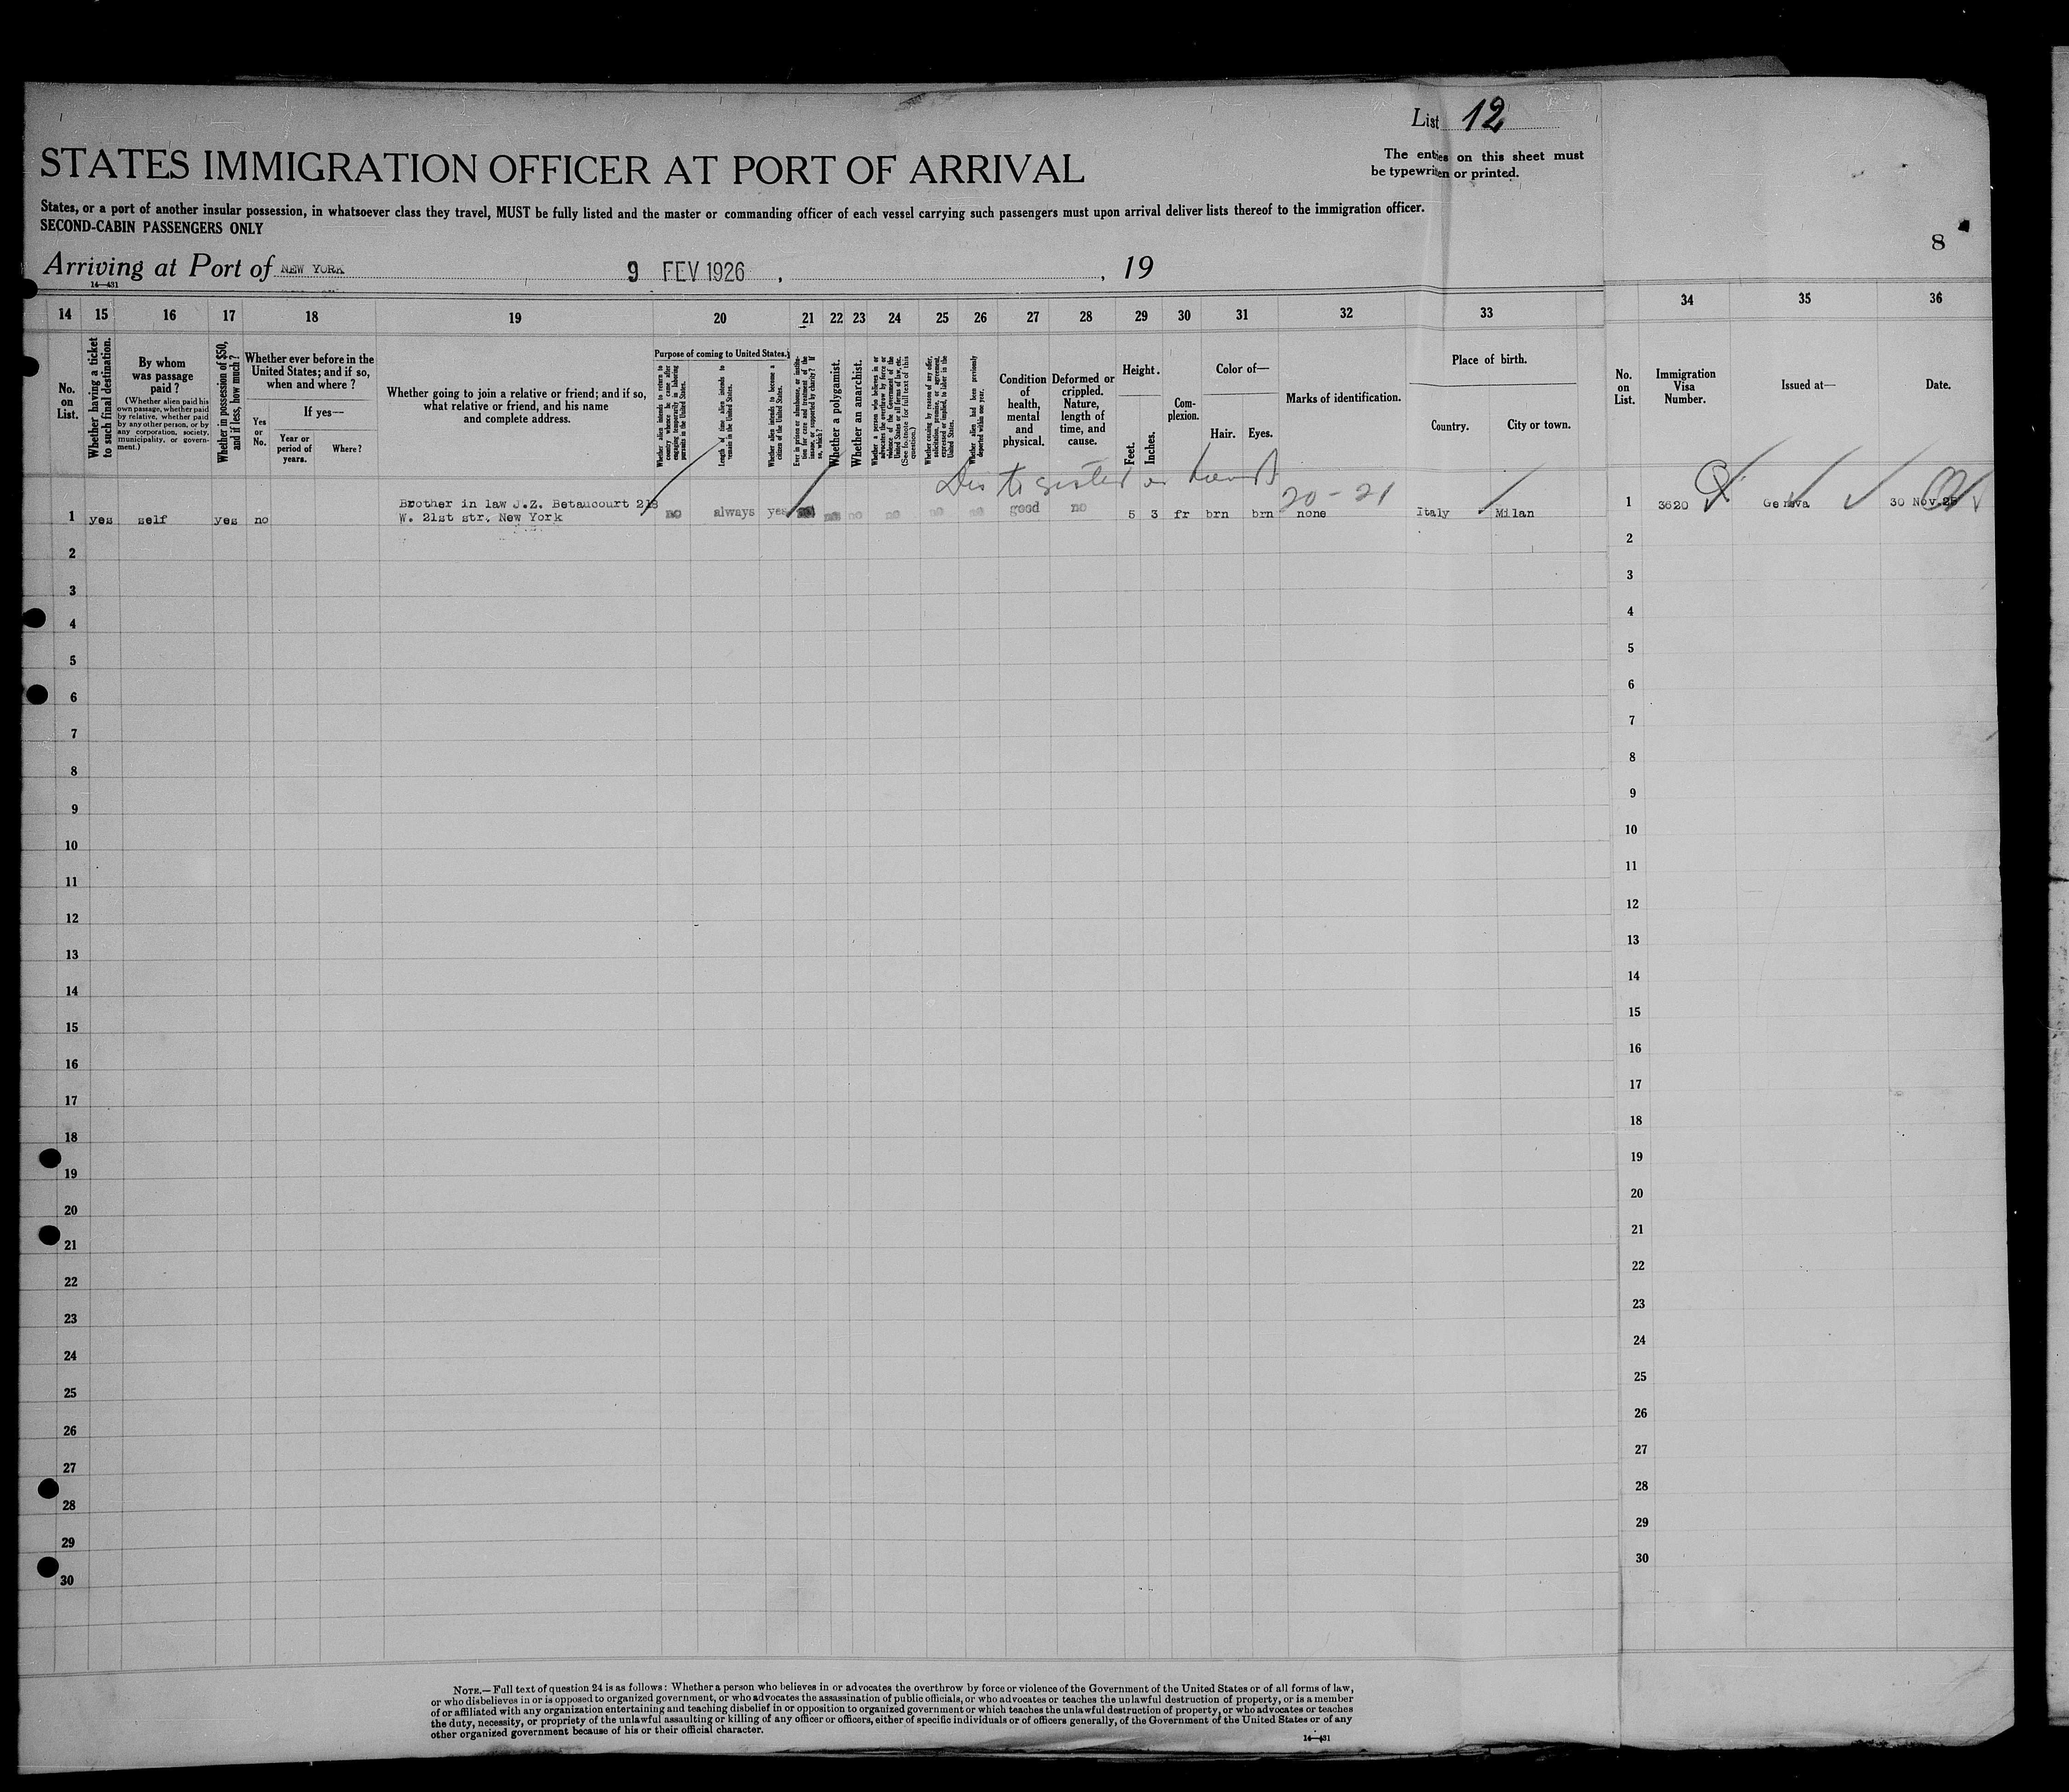 List 12
The entries on this sheet must
be typewritten or printed.
STATES IMMIGRATION OFFICER AT PORT OF ARRIVAL
States, or a port of another insular possession, in whatsoever class they travel, MUST be fully listed and the master or commanding officer of each vessel carrying such passengers must upon arrival deliver lists thereof to the immigration officer.
SECOND-CABIN PASSENGERS ONLY
8
Arriving at Port of NEW YORK 9 FEV 1926 , , 19
14—431
14 15 16 17 18 19 20 21 22 23 24 25 26 27 28 29 30 31 32 33 34 35 36
No. on List.
Whether having a ticket to such final destination.
By whom was passage paid?
(Whether alien paid his own passage, whether paid by relative, whether paid by any other person, or by any corporation, society, municipality, or government.)
Whether in possession of $50, and if less, how much?
Whether ever before in the United States; and if so, when and where?
Yes or No.
If yes—
Year or period of years.
Where?
Whether going to join a relative or friend; and if so, what relative or friend, and his name and complete address.
Purpose of coming to United States.
Whether alien intends to return to country whence he came after engaging temporarily in laboring pursuits in the United States.
Length of time alien intends to remain in the United States.
Whether alien intends to become a citizen of the United States.
Ever in prison or almshouse, or institution for care and treatment of the insane, or supported by charity? If so, which?
Whether a polygamist.
Whether an anarchist.
Whether a person who believes in or advocates the overthrow by force or violence of the Government of the United States or all forms of law, etc. (See footnote for full text of this question.)
Whether coming by reason of any offer, solicitation, promise, or agreement, expressed or implied, to labor in the United States.
Whether alien had been previously deported within one year.
Condition of health, mental and physical.
Deformed or crippled. Nature, length of time, and cause.
Height.
Feet.
Inches.
Complexion.
Color of—
Hair.
Eyes.
Marks of identification.
Place of birth.
Country.
City or town.
No. on List.
Immigration Visa Number.
Issued at—
Date.
20-21
Brother in law J.Z. Betaucourt 218
1 yes self yes no W. 21st str, New York no always yes no no no no no good no 5 3 fr brn brn none Italy Milan 1 3620 Geneva 30 Nov.25
2 2
3 3
4 4
5 5
6 6
7 7
8 8
9 9
10 10
11 11
12 12
13 13
14 14
15 15
16 16
17 17
18 18
19 19
20 20
21 21
22 22
23 23
24 24
25 25
26 26
27 27
28 28
29 29
30 30
NOTE.—Full text of question 24 is as follows: Whether a person who believes in or advocates the overthrow by force or violence of the Government of the United States or of all forms of law,
or who disbelieves in or is opposed to organized government, or who advocates the assassination of public officials, or who advocates or teaches the unlawful destruction of property, or is a member
of or affiliated with any organization entertaining and teaching disbelief in or opposition to organized government or which teaches the unlawful destruction of property, or who advocates or teaches
the duty, necessity, or propriety of the unlawful assaulting or killing of any officer or officers, either of specific individuals or of officers generally, of the Government of the United States or of any
other organized government because of his or their official character.
14—431